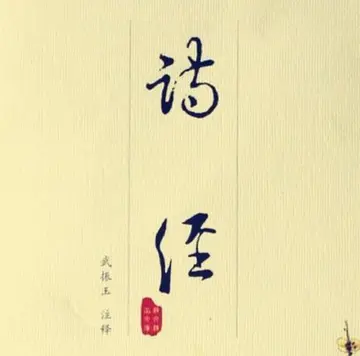 诗经
武振玉 注释